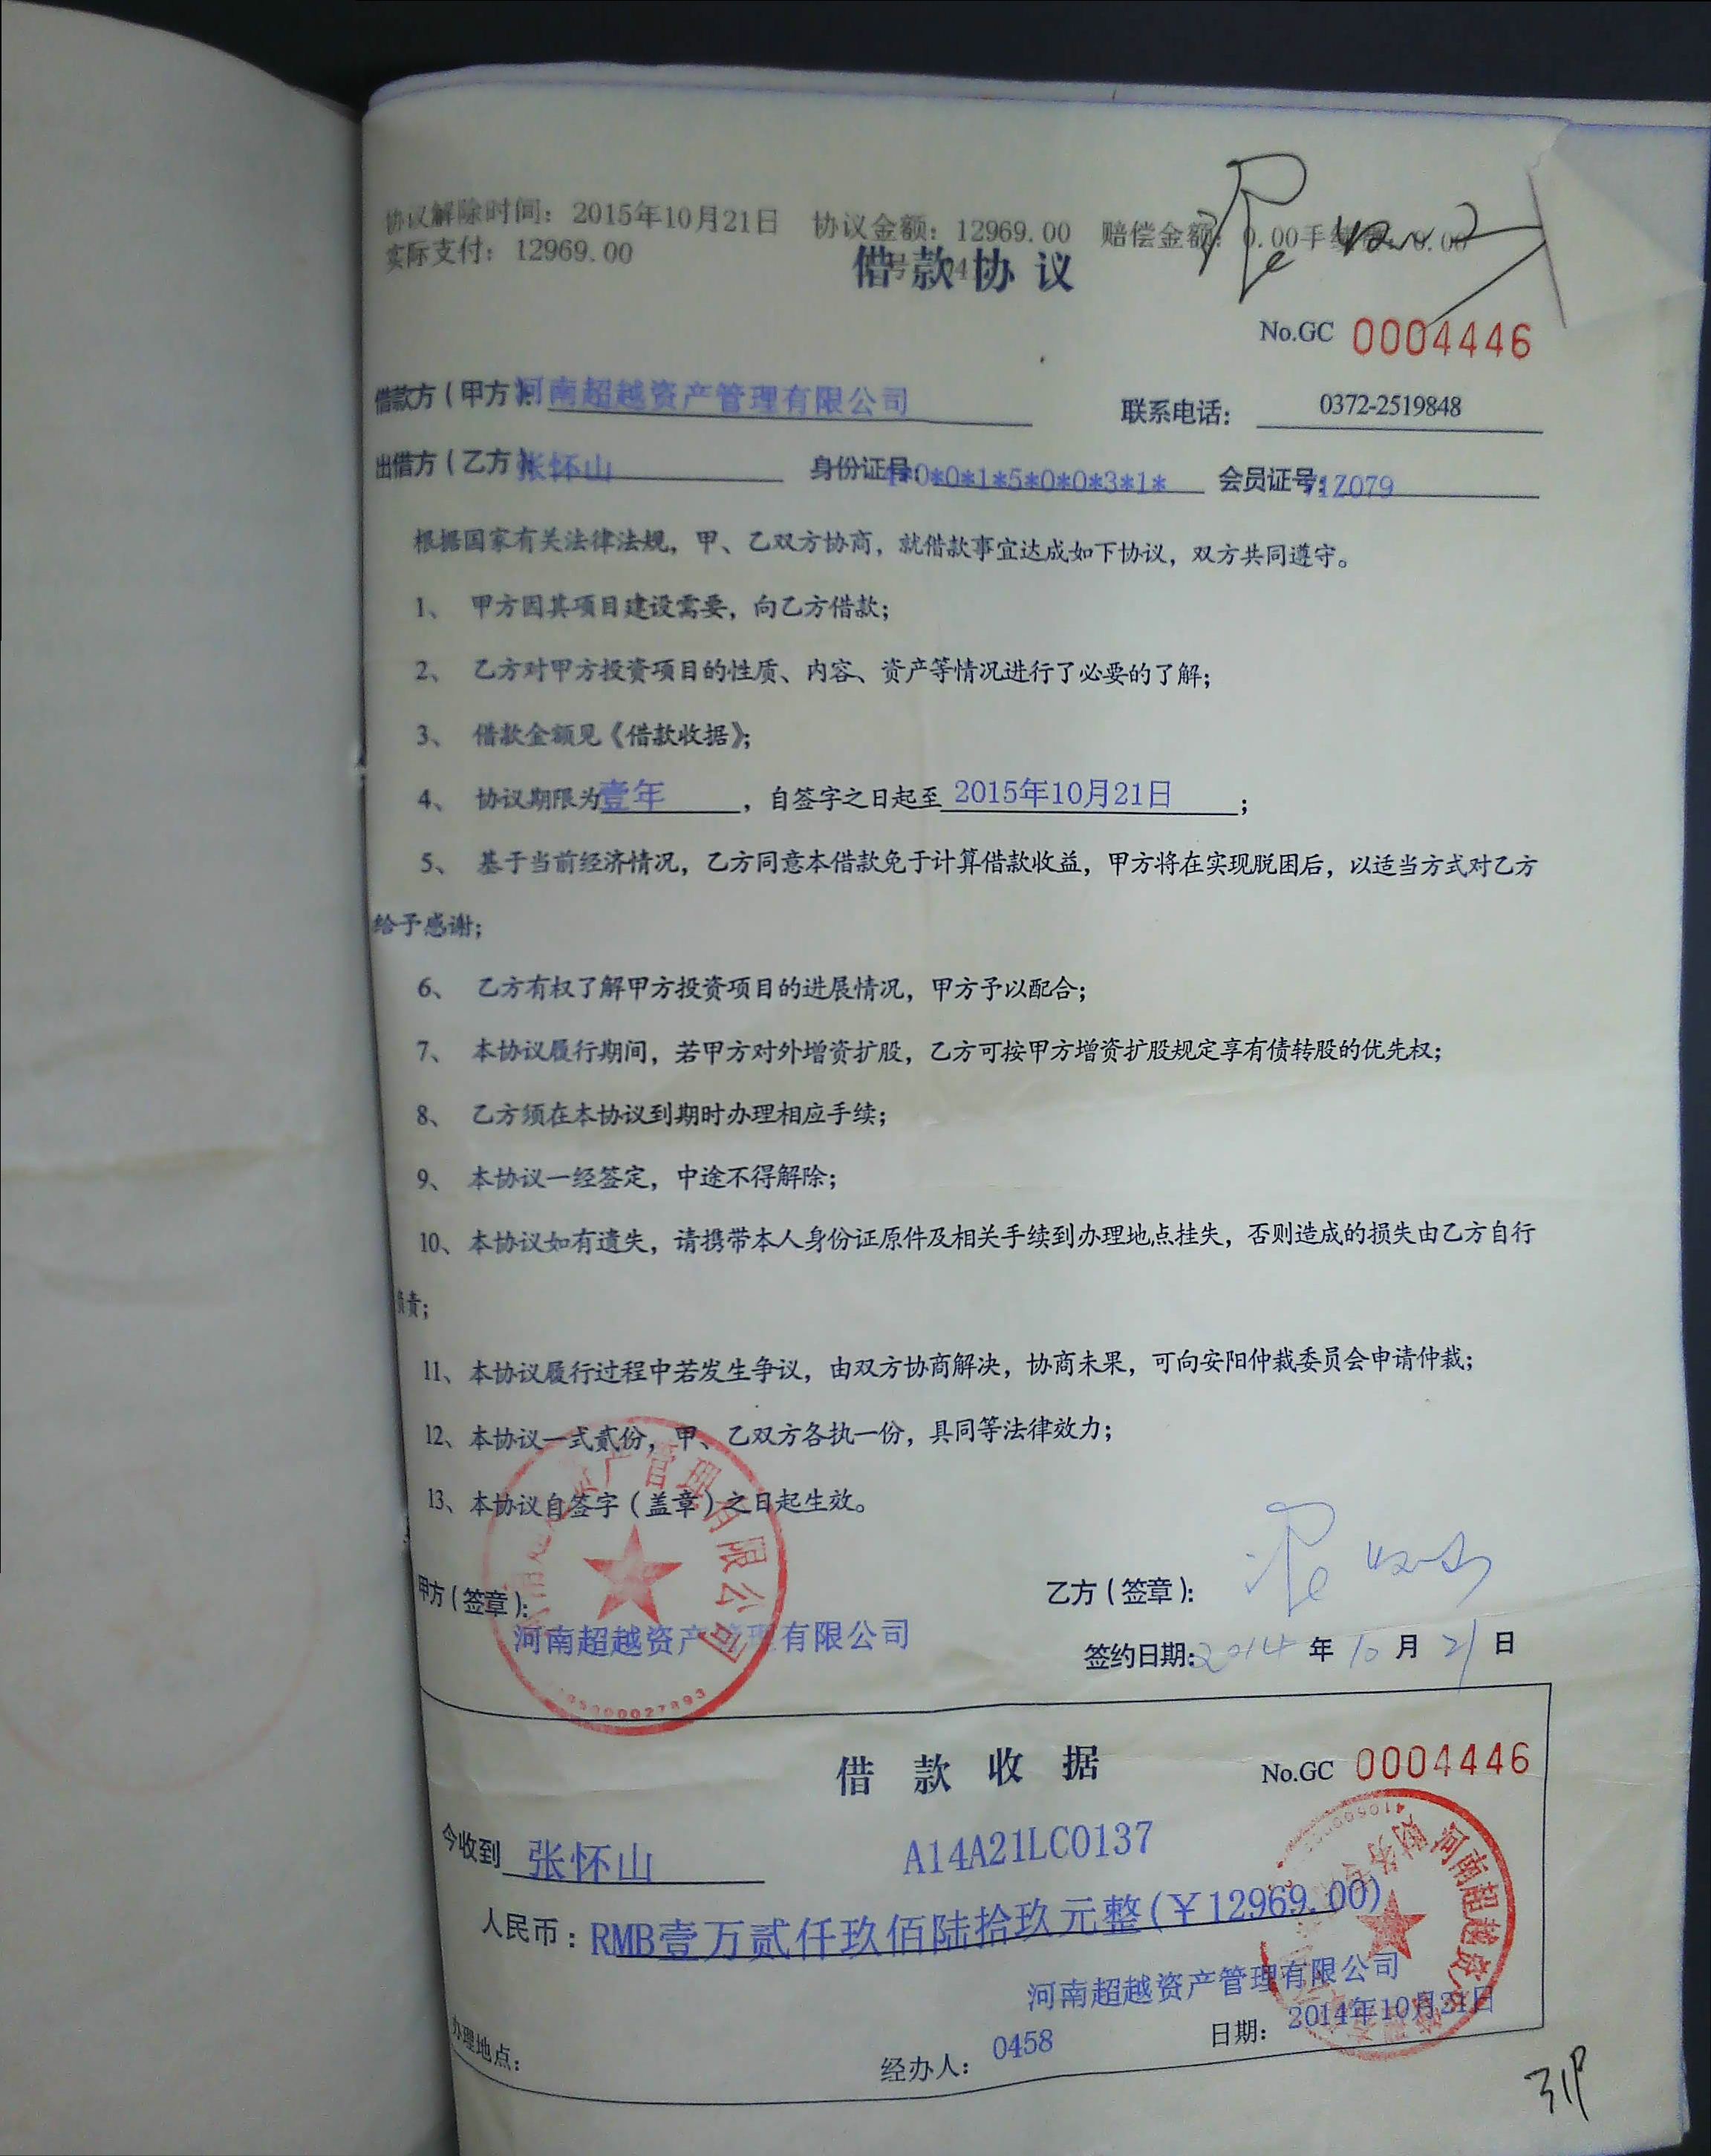 协议解除时间：2015年10月21日 协议金额：12969.00 赔偿金额：0.00手续
实际支付：12969.00
借款协议
No.GC 0004446
借款方（甲方）：河南超越资产管理有限公司 联系电话： 0372-2519848
出借方（乙方）：张怀山 身份证号：*0*0*1*5*0*0*3*1* 会员证号：1Z079
根据国家有关法律法规，甲、乙双方协商，就借款事宜达成如下协议，双方共同遵守。
1、 甲方因其项目建设需要，向乙方借款；
2、 乙方对甲方投资项目的性质、内容、资产等情况进行了必要的了解；
3、 借款金额见《借款收据》；
4、 协议期限为壹年，自签字之日起至2015年10月21日；
5、 基于当前经济情况，乙方同意本借款免于计算借款收益，甲方将在实现脱困后，以适当方式对乙方
给予感谢；
6、 乙方有权了解甲方投资项目的进展情况，甲方予以配合；
7、 本协议履行期间，若甲方对外增资扩股，乙方可按甲方增资扩股规定享有债转股的优先权；
8、 乙方须在本协议到期时办理相应手续；
9、 本协议一经签定，中途不得解除；
10、本协议如有遗失，请携带本人身份证原件及相关手续到办理地点挂失，否则造成的损失由乙方自行
负责；
11、本协议履行过程中若发生争议，由双方协商解决，协商未果，可向安阳仲裁委员会申请仲裁；
12、本协议一式贰份，甲、乙双方各执一份，具同等法律效力；
13、本协议自签字（盖章）之日起生效。
甲方（签章）： 乙方（签章）：
河南超越资产管理有限公司
签约日期：2014 年 10 月 21 日
借款收据
No.GC 0004446
今收到 张怀山 A14A21LC0137
人民币：RMB壹万贰仟玖佰陆拾玖元整(￥12969.00)
河南超越资产管理有限公司
办理地点： 经办人： 0458 日期： 2014年10月21日